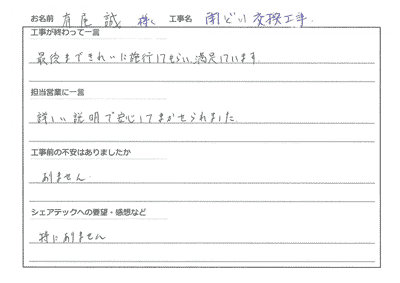 お名前 有尾 誠 様 工事名 雨どい交換工事
工事が終わって一言
最後まできれいに施行してもらい満足しています
担当営業に一言
詳しい説明で安心してまかせられました
工事前の不安はありましたか
ありません
シェアテックへの要望・感想など
特にありません